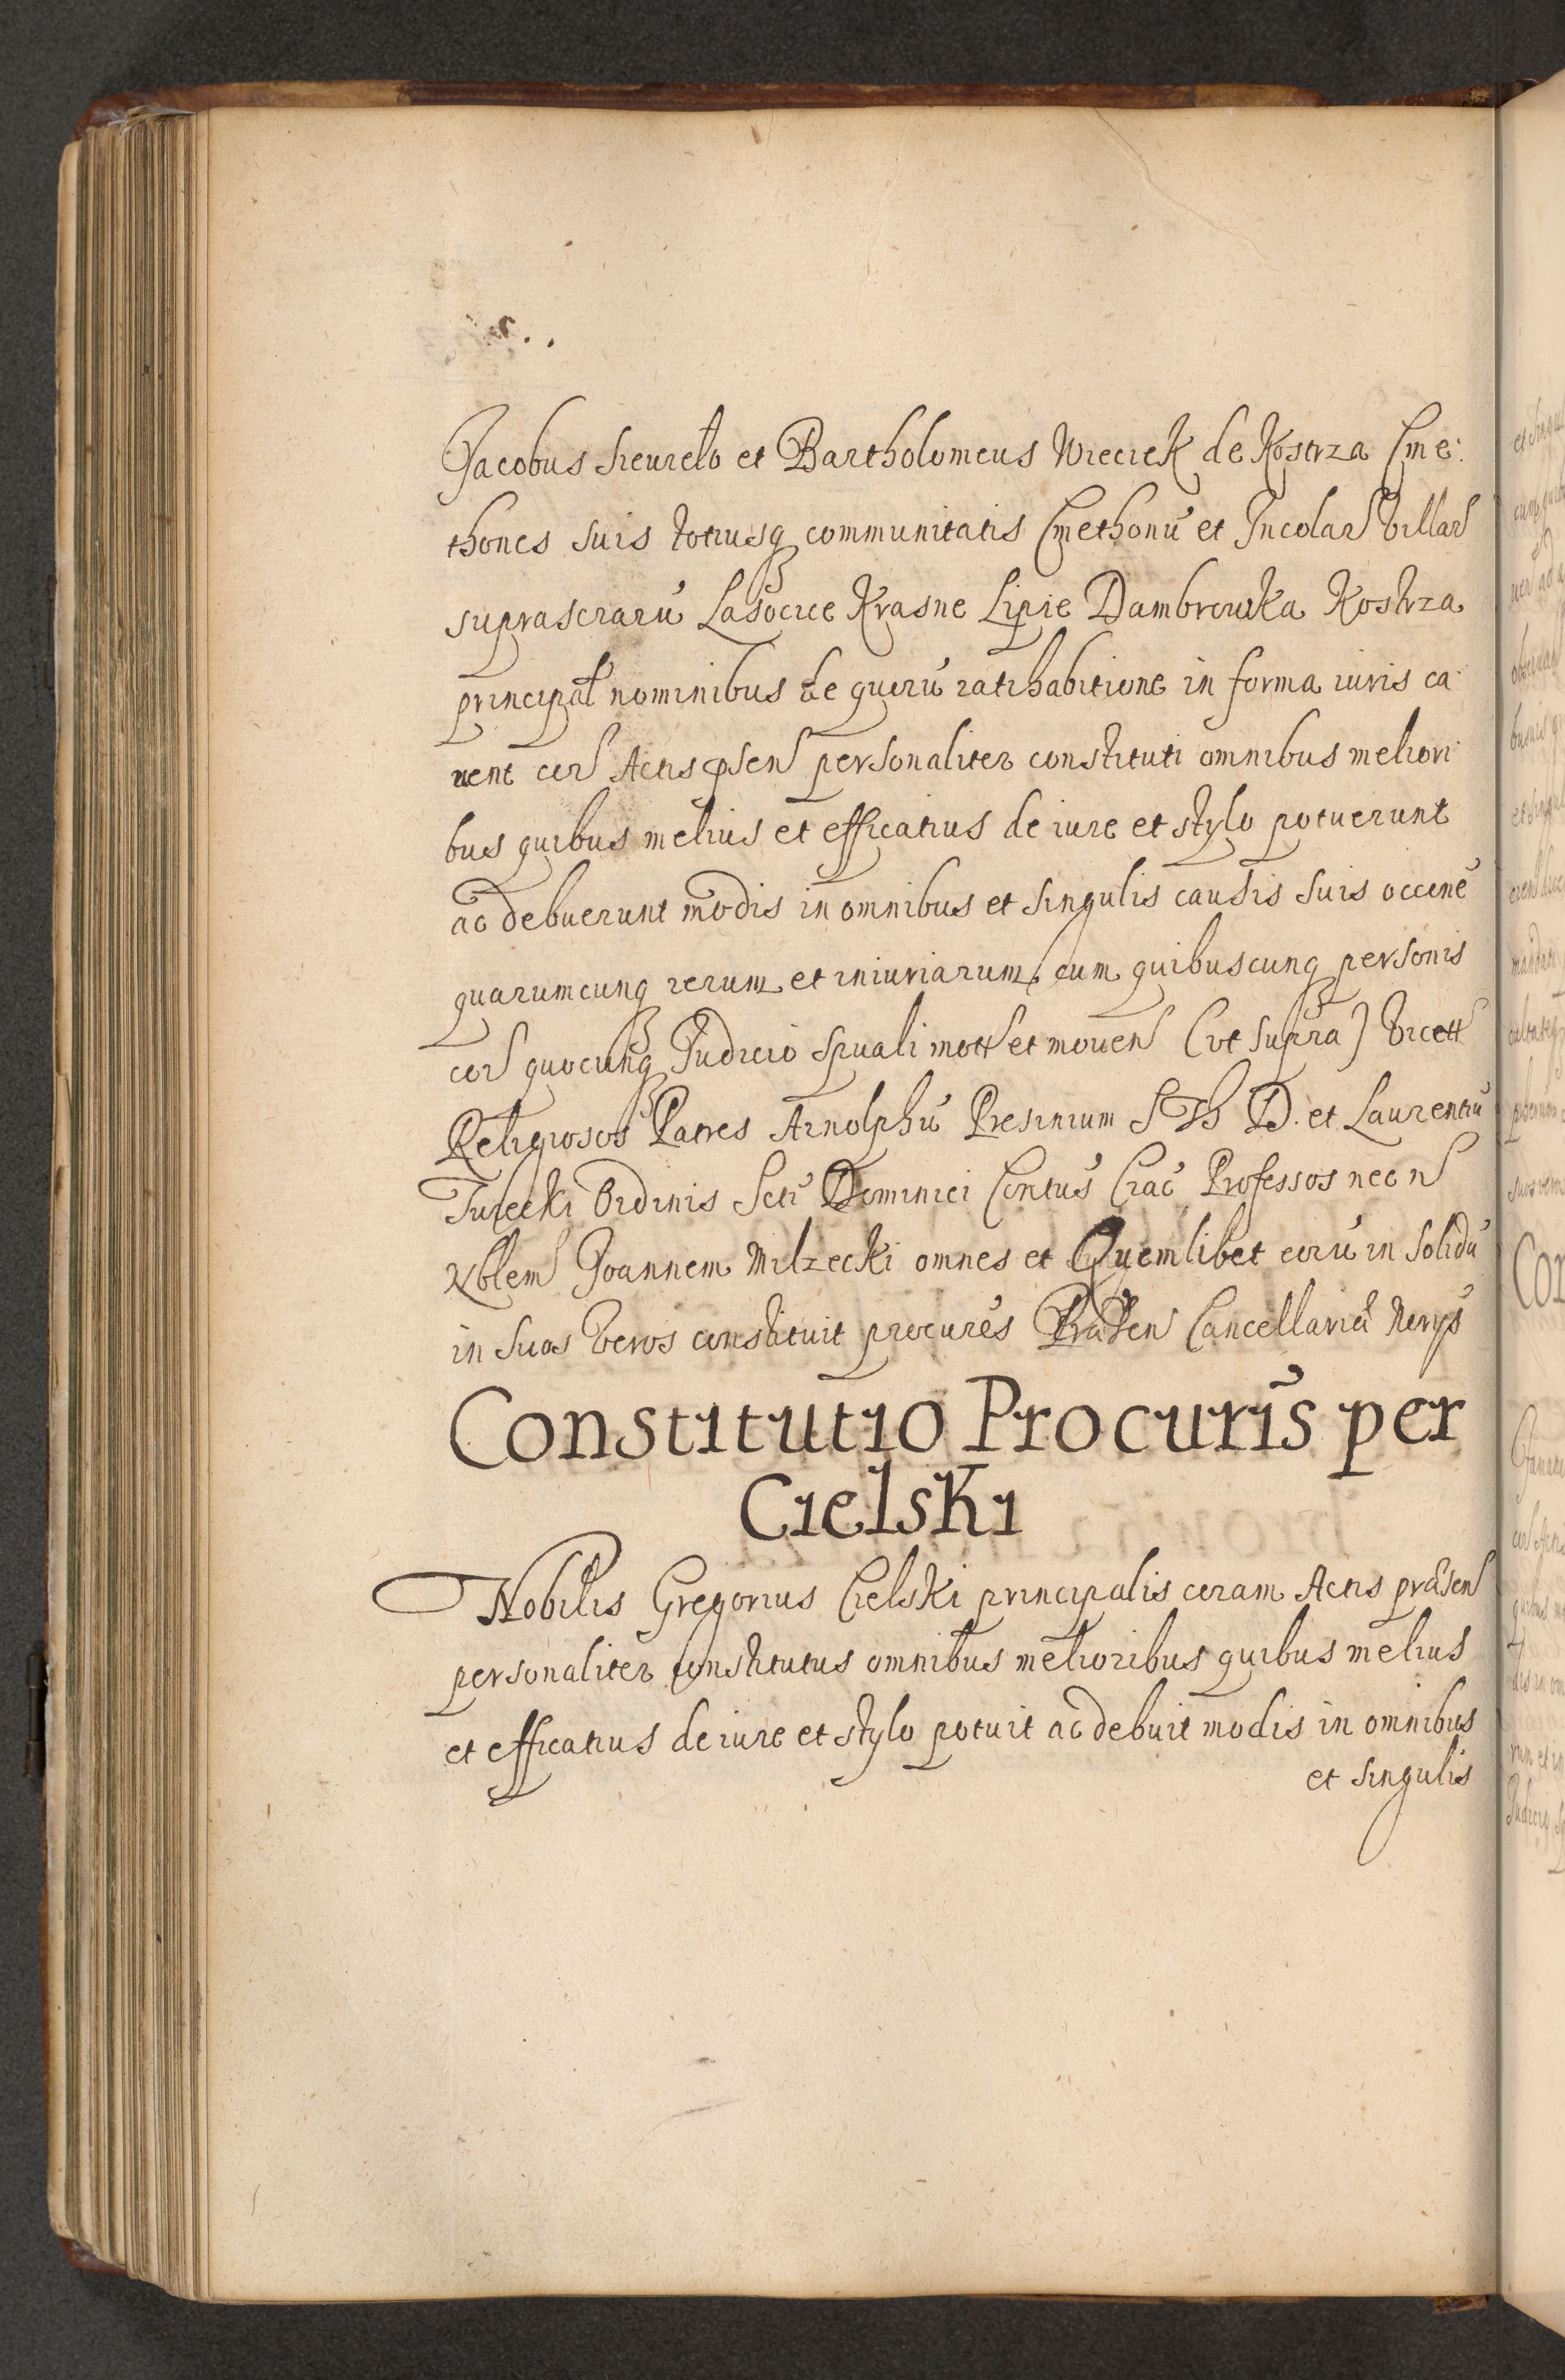 Jacobus Sieurelo et Bartholomeus Wieciek de Kostrza Cme:
thones suis totiusq communitatis Cmethonũ et Incolar Villar
suprascrarũ Lasocice Krasne Lipie Dambrowka Kostrza
principal nominibus de quorũ ratihabitione in forma iuris ca:
uent cor Actis psen personaliter constituti omnibus meliori
bus quibus melius et efficatius de iure et stylo potuerunt
ac debuerunt modis in omnibus et singulis causis suis occne
quarumcunq rerum et iniuriarum cum quibuscunq personis
cor quocunq Judicio spuali mott et mouen (vt supra) Vicett
Religiosos Patres Arnolphũ Presinium S Th D. et Laurentiũ
Turecki Ordinis Scti Dominici Contus Crac Professos nec n
Nblem Joannem Milzecki omnes et Quemlibet eorũ in solidũ
in suos veros constituit procures Præsen Cancellariæ
Constitutio Procuris per
Cielski
Nobilis Gregorius Cielski principalis coram Actis præsen
personaliter constitutus omnibus melioribus quibus melius
et efficatius de iure et stylo potuit ac debuit modis in omnibus
et singulis